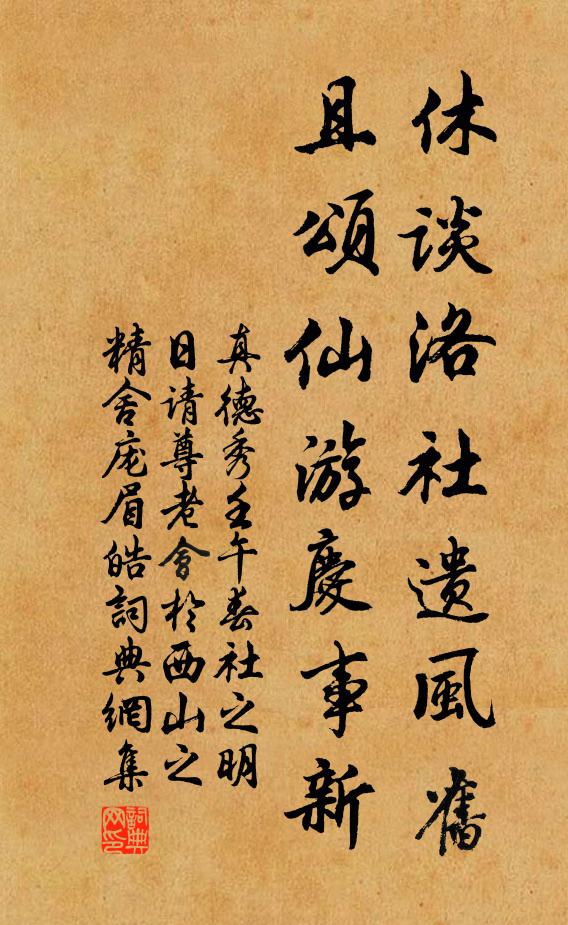 休谈洛社遗風舊
且頌仙游慶事新
真德秀壬午春社之明
日请尊老會於西山之
精舍庞眉皓詞典網集
詞典网印